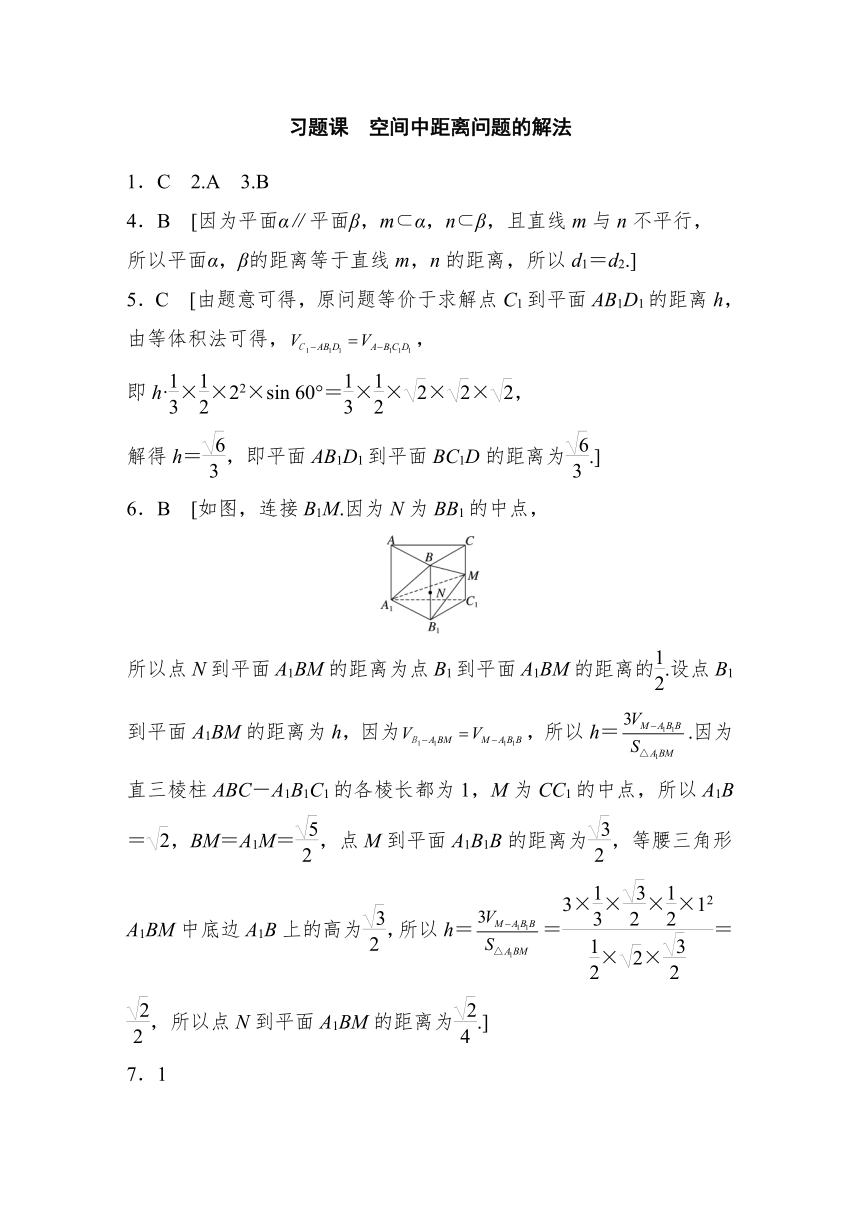 习题课　空间中距离问题的解法
1．C　2.A　3.B
4．B　[因为平面α∥平面β，m⊂α，n⊂β，且直线 m 与 n 不平行，
所以平面α，β的距离等于直线 m，n 的距离，所以 d₁＝d₂.]
5．C　[由题意可得，原问题等价于求解点 C₁到平面 AB₁D₁的距离 h，
由等体积法可得，V_{C₁－AB₁D₁}＝V_{A－B₁C₁D₁}，
即 h·1/3×1/2×2²×sin 60°＝1/3×1/2×√2×√2×√2，
解得 h＝√6/3，即平面 AB₁D₁到平面 BC₁D 的距离为√6/3.]
6．B　[如图，连接 B₁M.因为 N 为 BB₁的中点，
A C
B
M
N
A₁ C₁
B₁
所以点 N 到平面 A₁BM 的距离为点 B₁到平面 A₁BM 的距离的1/2.设点 B₁
到平面 A₁BM 的距离为 h，因为V_{B₁－A₁BM}＝V_{M－A₁B₁B}，所以 h＝3V_{M－A₁B₁B}/S_{△A₁BM}.因为
直三棱柱 ABC－A₁B₁C₁的各棱长都为 1，M 为 CC₁的中点，所以 A₁B
＝√2，BM＝A₁M＝√5/2，点 M 到平面 A₁B₁B 的距离为√3/2，等腰三角形
A₁BM 中底边 A₁B 上的高为√3/2，所以 h＝3V_{M－A₁B₁B}/S_{△A₁BM}＝(3×1/3×√3/2×1/2×1²)/(1/2×√2×√3/2)＝
√2/2，所以点 N 到平面 A₁BM 的距离为√2/4.]
7．1